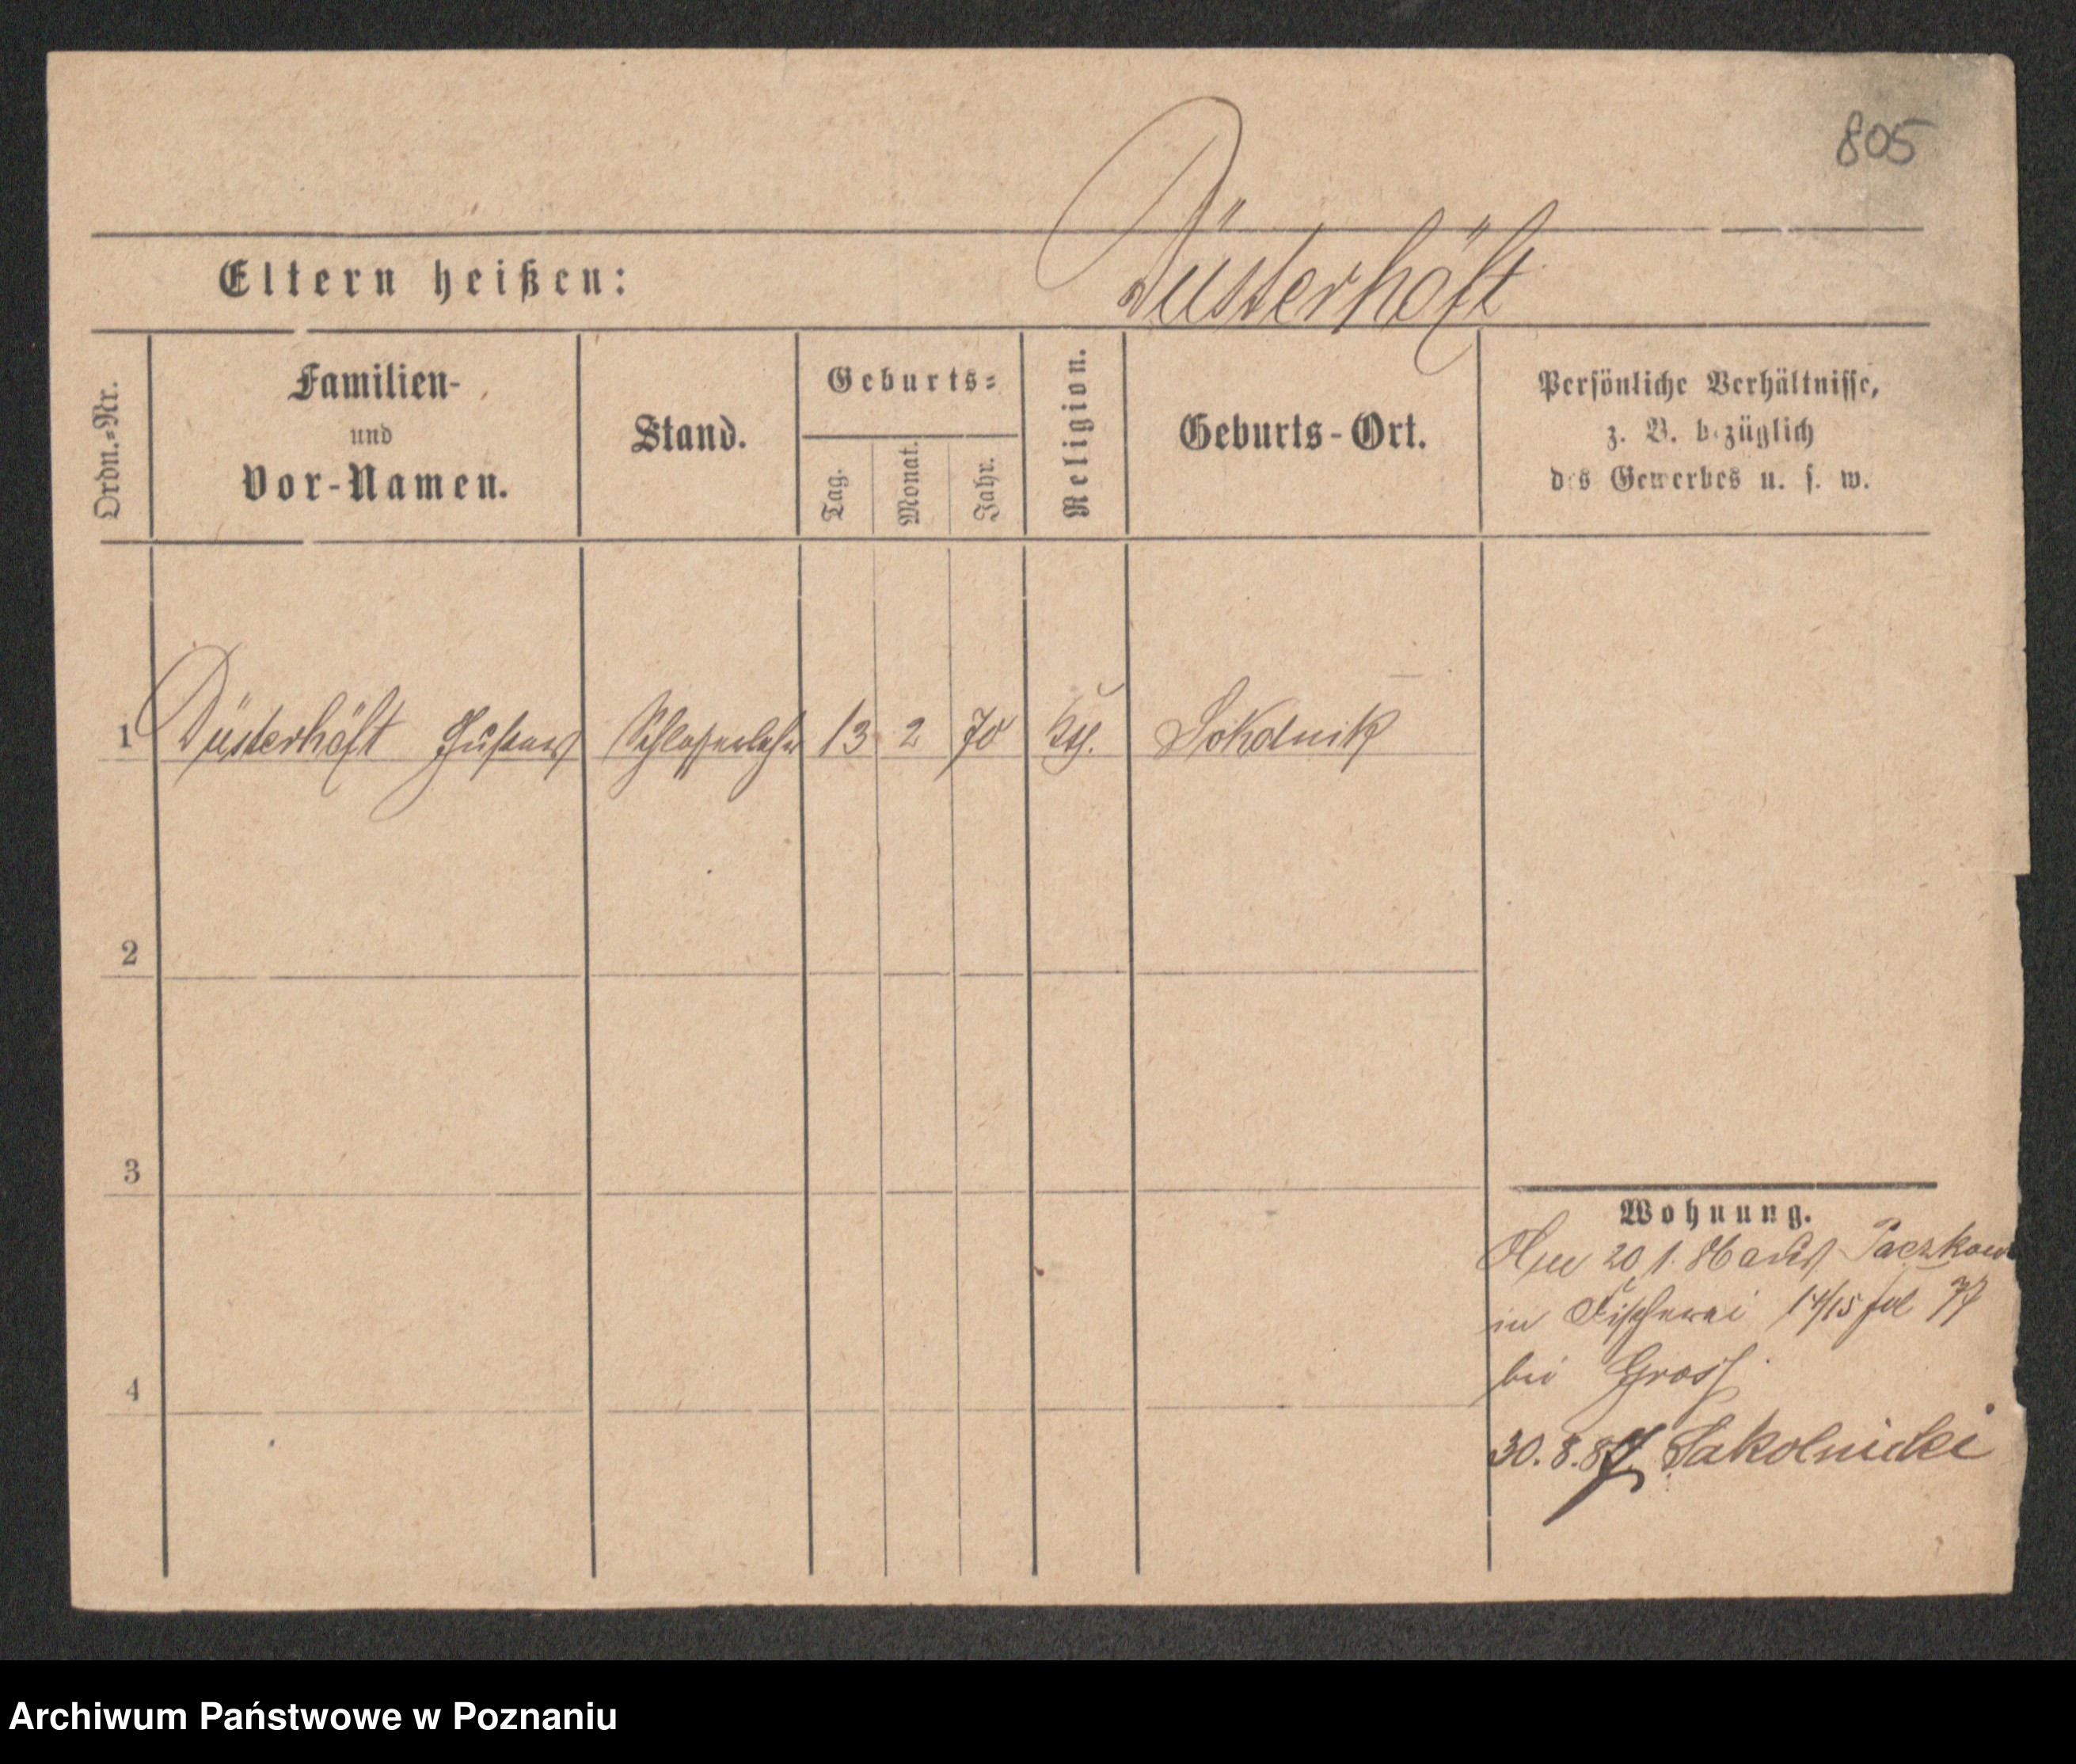 805
Düsterhöft
Eltern heißen:
Ordn.=Nr.
Familien-
und
Vor-Namen.
Stand.
Geburts=
Tag.
Monat.
Jahr.
Religion.
Geburts-Ort.
Persönliche Verhältnisse,
z. B. bezüglich
des Gewerbes u. s. w.
1 Düsterhöft Gustav 13 2 70 Sokolnik
2
3
4
Wohnung.
20/1. Paczkow
in Fischerei 14/15
bei Gross
30.8.87 Sakolnicki
Archiwum Państwowe w Poznaniu